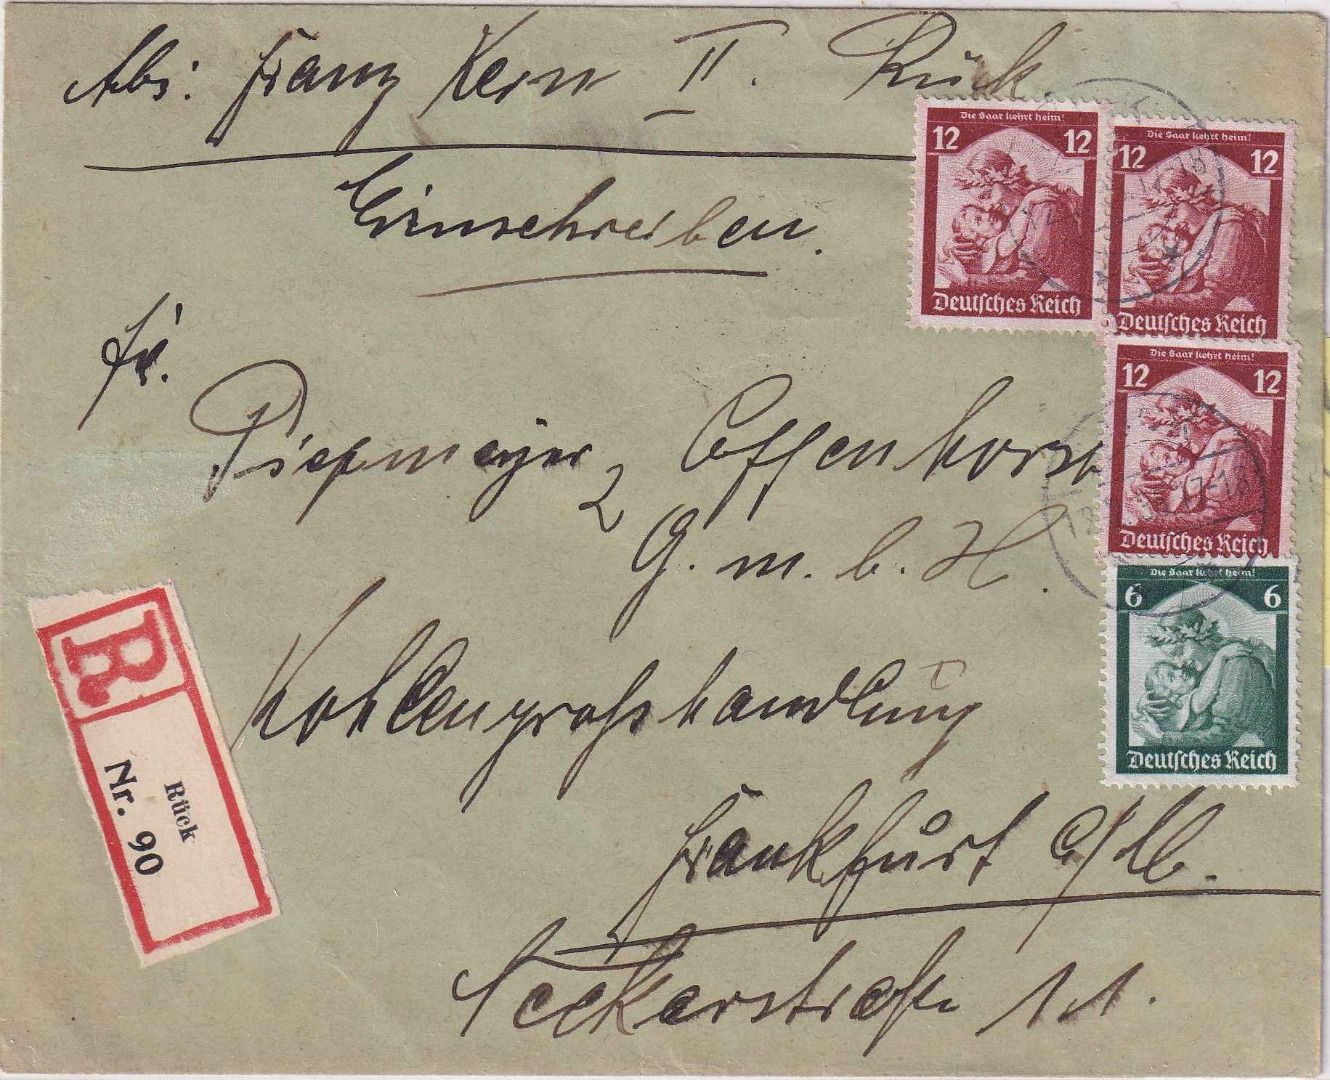 Abs: Franz Kern II. Rück
Einschreiben.
Die Saar kehrt heim!
12 12
Deutsches Reich
Die Saar kehrt heim!
12 12
Deutsches Reich
Fa.
Piepmeyer, Offenhorst
G. m. b. H.
Die Saar kehrt heim!
12 12
Deutsches Reich
17-18
Die Saar kehrt heim!
6 6
Deutsches Reich
R
Rück
Nr. 90
Kohlengroßhandlung
Frankfurt a/M.
Neckarstraße 11.